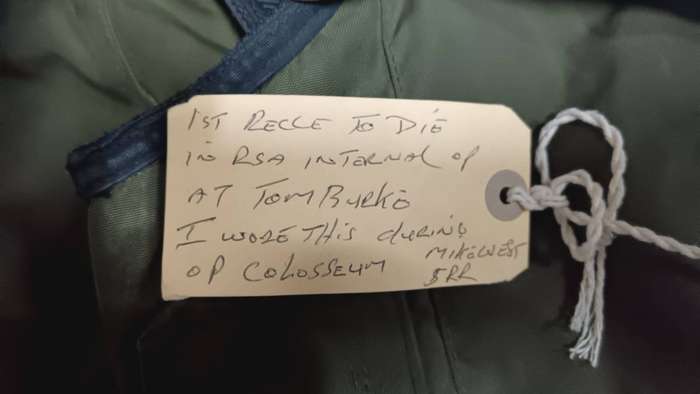 1ST RECCE TO DIE
IN RSA INTERNAL OP
AT TOM BURKE
I WORE THIS DURING
OP COLOSSEUM MIKE WEST
5RR